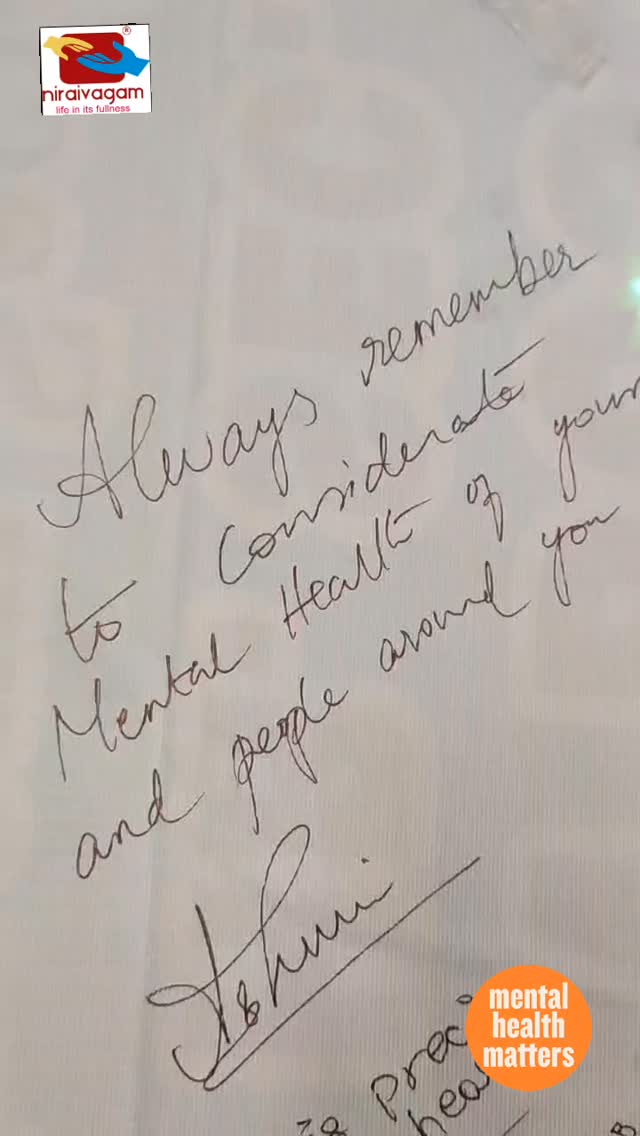 niraivagam
life in its fullness
Always remember
to considerate
Mental Health of your
and people around you
mental
health
matters